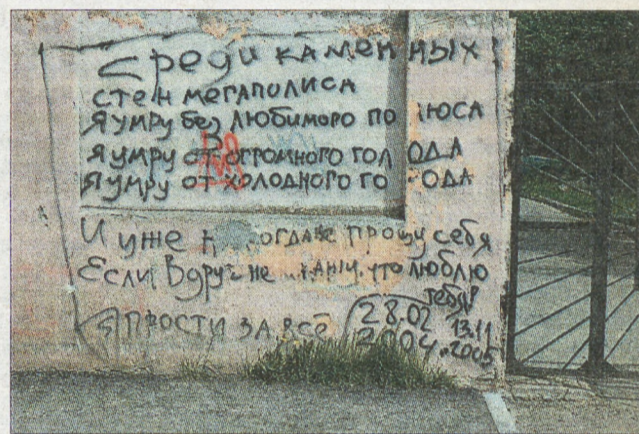 Среди каменных
стен мегаполиса
Я умру без любимого полюса
Я умру от огромного голода
Я умру от холодного города
И уже никогда не прощу себя
Если вдруг не скажу, что люблю
тебя!
ПРОСТИ ЗА ВСЁ
28.02 13.11
2004. 2005